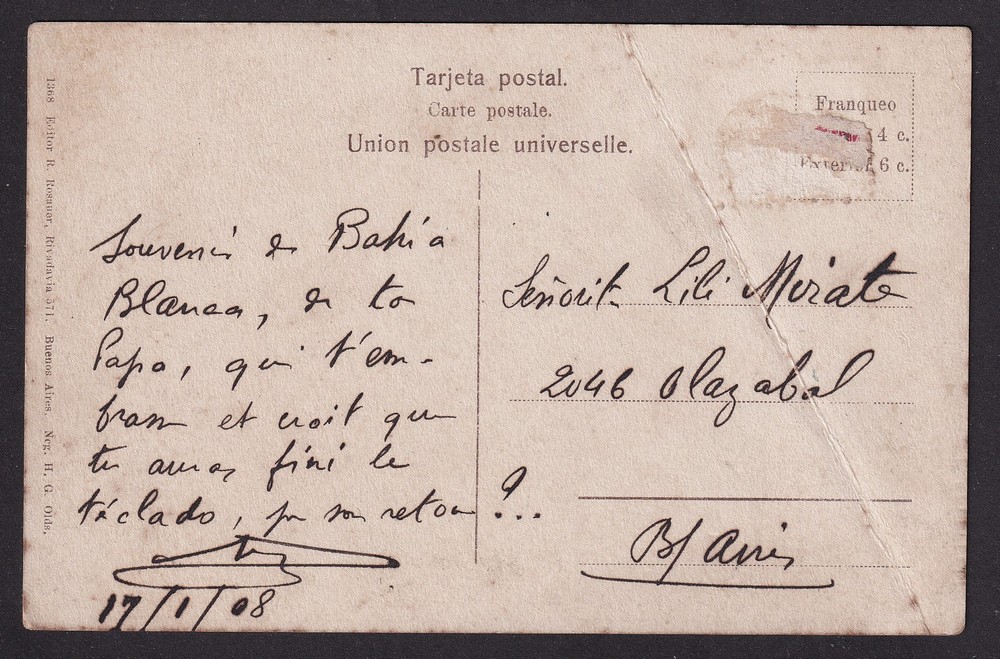 Tarjeta postal.
Carte postale.
Union postale universelle.
Franqueo
4 c.
6 c.
1368 Editor R. Rosauer, Rivadavia 571. Buenos Aires. Neg. H. G. Olds.
Souvenir de Bahia
Blanca, de ton
Papa, qui t'em-
brasse et croit que
tu auras fini le
téclado, par son retour ?...
17/1/08
Señorita Lili Mirate
2046 Olazabal
Bs Aires